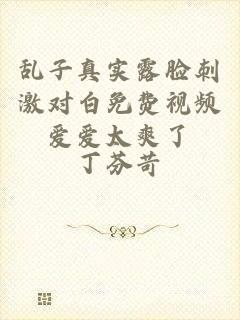 乱子真实露脸刺
激对白免费视频
爱爱太爽了
丁芬苛